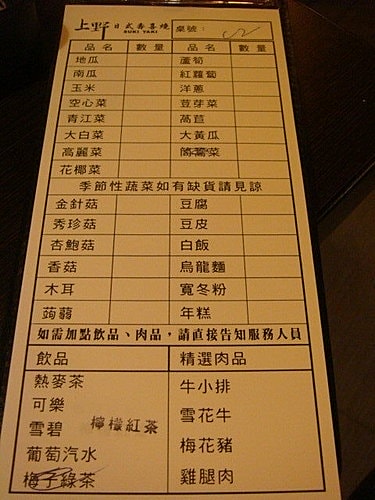 上野 日式壽喜燒 桌號：
SUKI YAKI
品名 數量 品名 數量
地瓜 蘆筍
南瓜 紅蘿蔔
玉米 洋蔥
空心菜 豆芽菜
青江菜 萵苣
大白菜 大黃瓜
高麗菜 茼蒿菜
花椰菜
季節性蔬菜如有缺貨請見諒
金針菇 豆腐
秀珍菇 豆皮
杏鮑菇 白飯
香菇 烏龍麵
木耳 寬冬粉
蒟蒻 年糕
如需加點飲品、肉品，請直接告知服務人員
飲品 精選肉品
熱麥茶 牛小排
可樂 雪花牛
雪碧 檸檬紅茶 梅花豬
葡萄汽水 雞腿肉
梅子綠茶